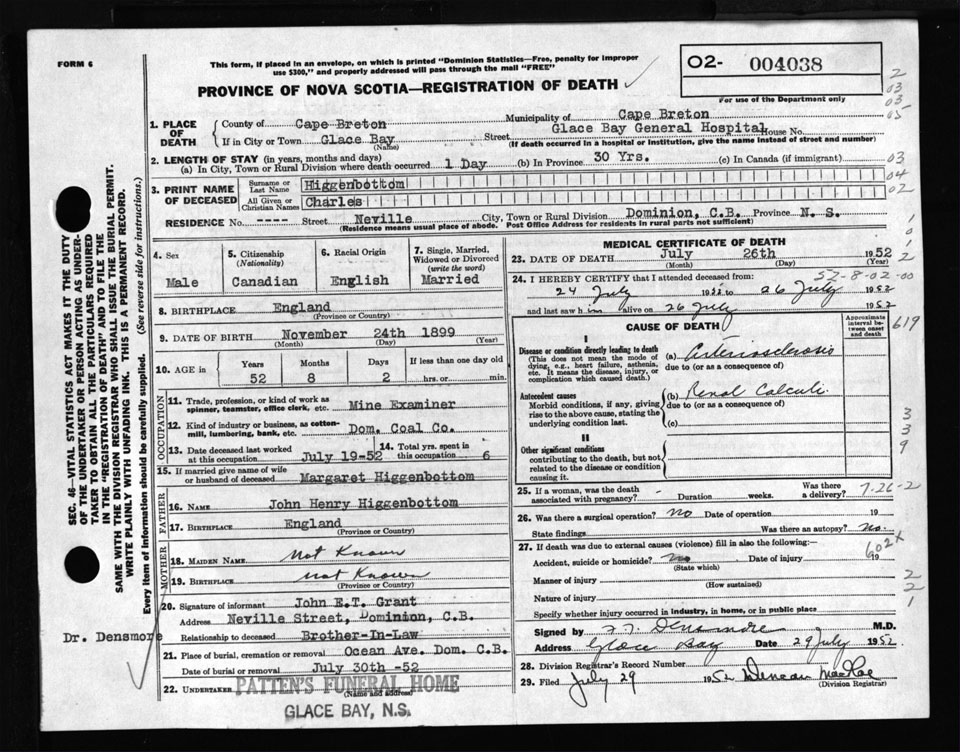 FORM 6
This form, if placed in an envelope, on which is printed "Dominion Statistics—Free, penalty for improper
use $300," and properly addressed will pass through the mail "FREE"
PROVINCE OF NOVA SCOTIA—REGISTRATION OF DEATH
O2- 004038
For use of the Department only
1. PLACE OF DEATH
County of Cape Breton Municipality of Cape Breton
If in City or Town Glace Bay Street Glace Bay General Hospital House No.
(Name) (If death occurred in a hospital or institution, give the name instead of street and number)
2. LENGTH OF STAY (in years, months and days)
(a) In City, Town or Rural Division where death occurred 1 Day (b) In Province 30 Yrs. (c) In Canada (if immigrant)
3. PRINT NAME OF DECEASED
Surname or Last Name Higgenbottom
All Given or Christian Names Charles
RESIDENCE No. ---- Street Neville City, Town or Rural Division Dominion, C.B. Province N. S.
(Residence means usual place of abode. Post Office Address for residents in rural parts not sufficient)
4. Sex
Male
5. Citizenship
(Nationality)
Canadian
6. Racial Origin
English
7. Single, Married, Widowed or Divorced
(write the word)
Married
8. BIRTHPLACE England
(Province or Country)
9. DATE OF BIRTH November 24th 1899
(Month) (Day) (Year)
10. AGE in
Years Months Days If less than one day old
52 8 2 hrs. or min.
OCCUPATION
11. Trade, profession, or kind of work as
spinner, teamster, office clerk, etc. Mine Examiner
12. Kind of industry or business, as cotton-
mill, lumbering, bank, etc. Dom. Coal Co.
13. Date deceased last worked
at this occupation July 19-52
14. Total yrs. spent in
this occupation 6
15. If married give name of wife
or husband of deceased Margaret Higgenbottom
FATHER
16. NAME John Henry Higgenbottom
17. BIRTHPLACE England
(Province or Country)
MOTHER
18. MAIDEN NAME Not Known
19. BIRTHPLACE not Known
(Province or Country)
20. Signature of informant John E.T. Grant
Address Neville Street, Dominion, C.B.
Relationship to deceased Brother-In-Law
21. Place of burial, cremation or removal Ocean Ave. Dom. C.B.
Date of burial or removal July 30th -52
22. UNDERTAKER PATTEN'S FUNERAL HOME
(Name and address)
GLACE BAY, N.S.
MEDICAL CERTIFICATE OF DEATH
23. DATE OF DEATH July 26th 1952
(Month) (Day) (Year)
24. I HEREBY CERTIFY that I attended deceased from: 52-8-02-00
24 July 1952 to 26 July 1952
and last saw him alive on 26 July 1952
CAUSE OF DEATH
Approximate interval between onset and death
I
Disease or condition directly leading to death
(This does not mean the mode of dying, e.g., heart failure, asthenia, etc. It means the disease, injury, or complication which caused death.)
(a) Arteriosclerosis
due to (or as a consequence of)
Antecedent causes
Morbid conditions, if any, giving rise to the above cause, stating the underlying condition last.
(b) Renal Calculi
due to (or as a consequence of)
(c)
II
Other significant conditions
contributing to the death, but not related to the disease or condition causing it.
25. If a woman, was the death
associated with pregnancy? - Duration weeks. Was there a delivery? 7-26-2
26. Was there a surgical operation? no Date of operation 19
State findings Was there an autopsy? no.
27. If death was due to external causes (violence) fill in also the following:—
602X
Accident, suicide or homicide? no Date of injury 19
(State which)
Manner of injury
(How sustained)
Nature of injury
Specify whether injury occurred in industry, in home, or in public place
Signed by F.J. Densmore M.D.
Address Glace Bay Date 29 July 1952
28. Division Registrar's Record Number
29. Filed July 29 1952 Duncan MacRae
(Division Registrar)
SEC. 46—VITAL STATISTICS ACT MAKES IT THE DUTY
OF THE UNDERTAKER OR PERSON ACTING AS UNDER-
TAKER TO OBTAIN ALL THE PARTICULARS REQUIRED
IN THE "REGISTRATION OF DEATH" AND TO FILE THE
SAME WITH THE DIVISION REGISTRAR WHO SHALL ISSUE THE BURIAL PERMIT.
WRITE PLAINLY WITH UNFADING INK. THIS IS A PERMANENT RECORD.
Every item of information should be carefully supplied. (See reverse side for instructions.)
Dr. Densmore
2
03
03
05
03
04
02
619
3
3
9
2
2
1